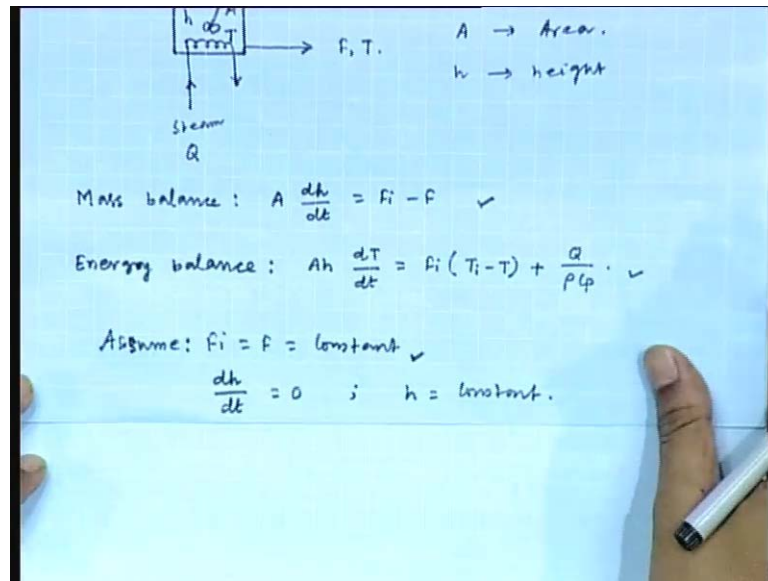 h A
T
F, T.
A → Area.
h → height
Steam
Q
Mass balance : A dh/dt = Fi - F ✓
Energy balance : Ah dT/dt = Fi ( Ti - T ) + Q/ρCp . ✓
Assume : Fi = F = Constant ✓
dh/dt = 0 ; h = Constant.